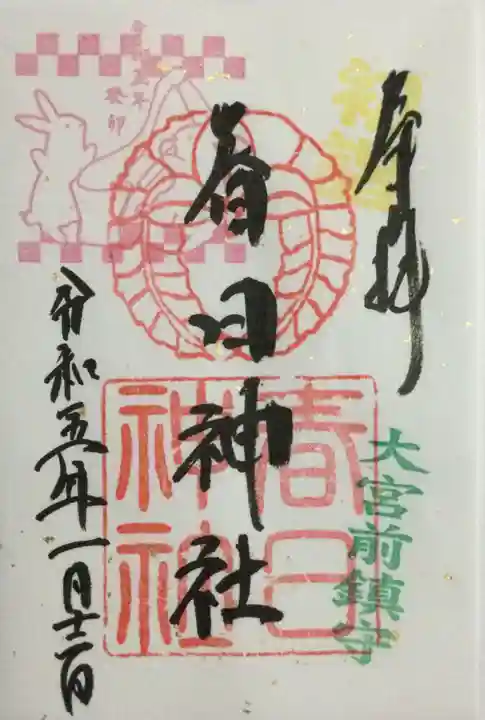 奉拝
大宮前鎮守
春日神社
春日
神社
令和五年
癸卯
令和五年一月十二日